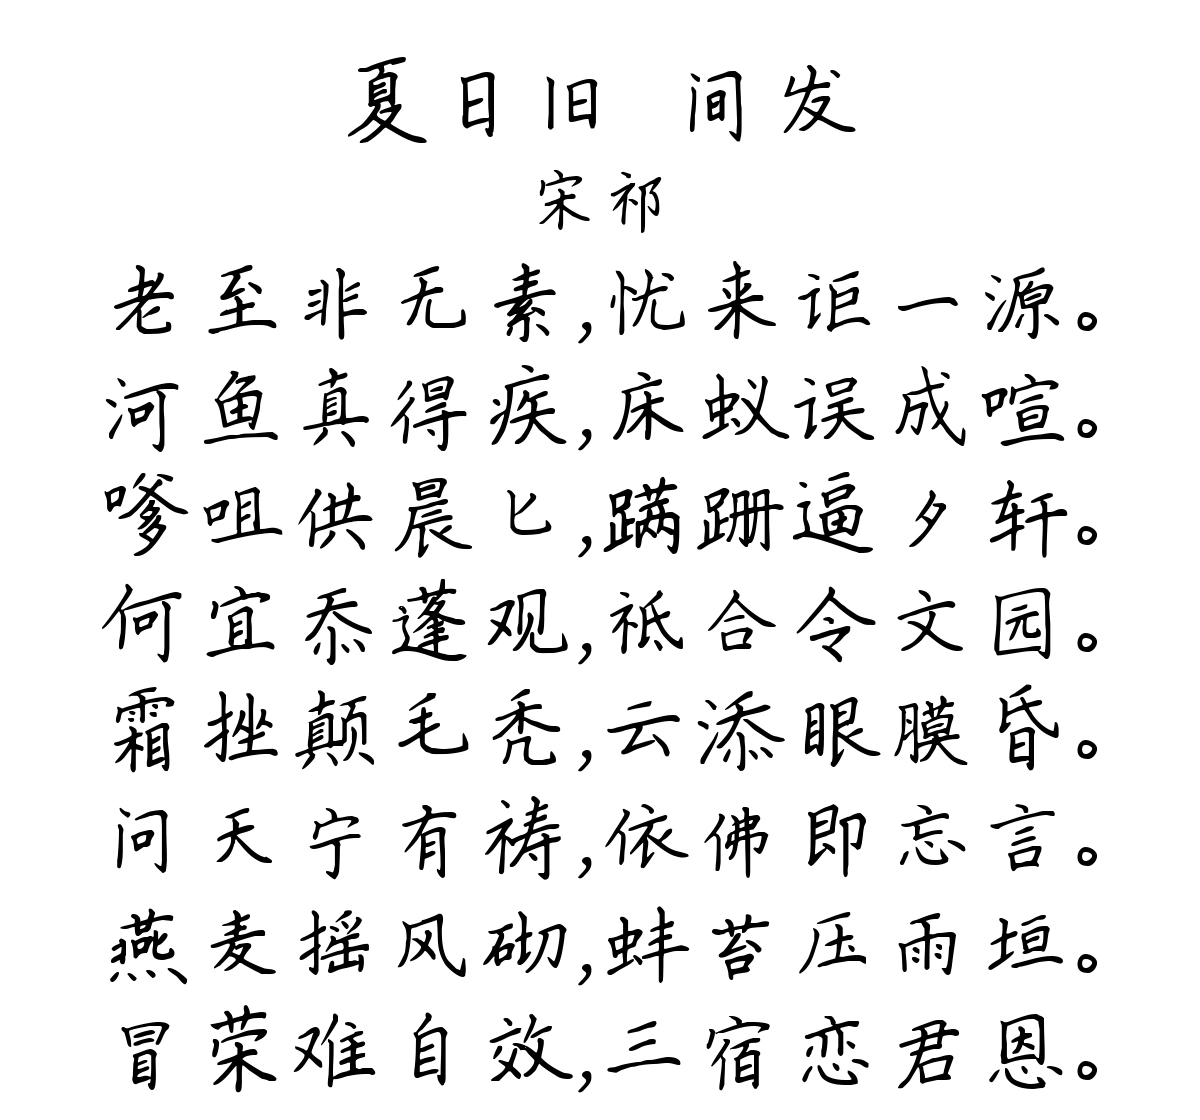 夏日旧 间发
宋祁
老至非无素,忧来讵一源。
河鱼真得疾,床蚁误成喧。
嗲咀供晨匕,蹒跚逼夕轩。
何宜忝蓬观,祗合令文园。
霜挫颠毛秃,云添眼膜昏。
问天宁有祷,依佛即忘言。
燕麦摇风砌,蚌苔压雨垣。
冒荣难自效,三宿恋君恩。